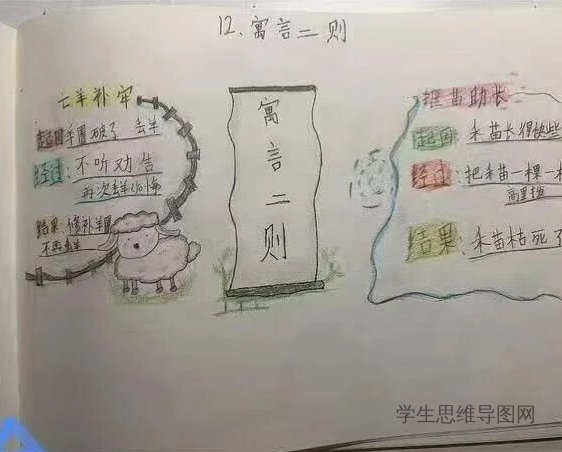 12、寓言二则
亡羊补牢
起因 羊圈破了 丢羊
经过: 不听劝告
再次丢羊后悔
结果: 修补羊圈
不再丢羊
寓言二则
揠苗助长
起因: 禾苗长得慢些
经过: 把禾苗一棵一棵
高里拔
结果: 禾苗枯死了
学生思维导图网